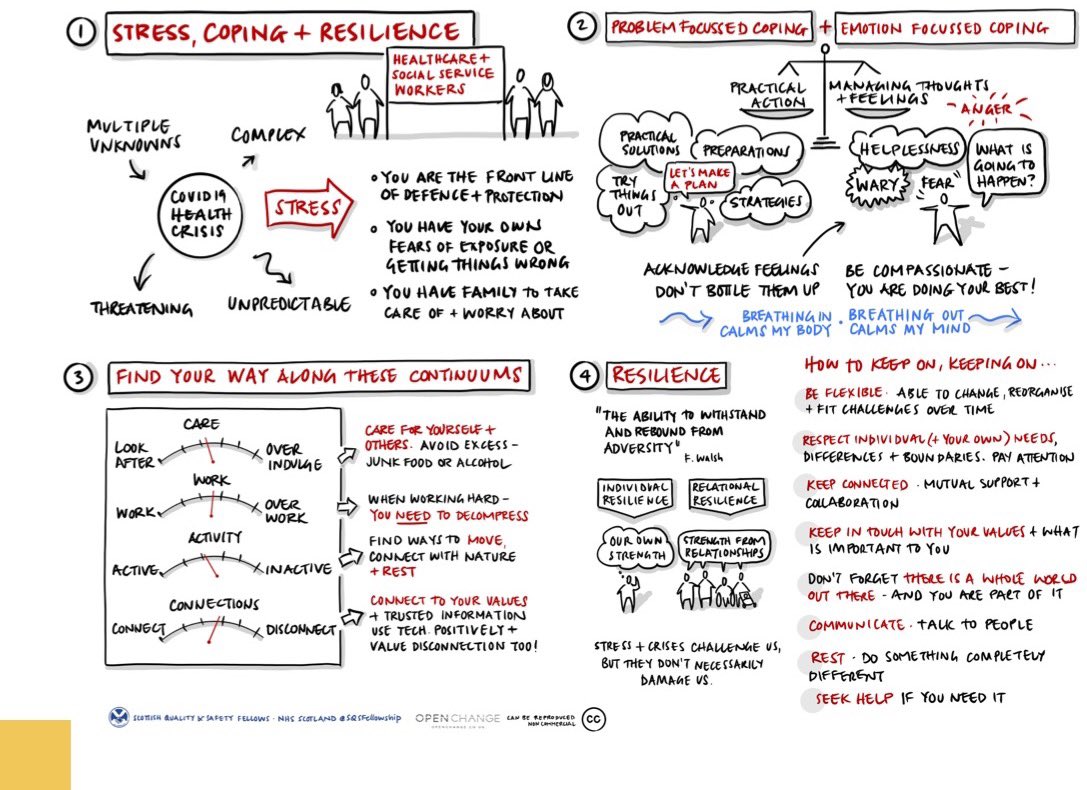 1 STRESS, COPING + RESILIENCE
HEALTHCARE +
SOCIAL SERVICE
WORKERS
MULTIPLE
UNKNOWNS
COMPLEX
COVID19
HEALTH
CRISIS
THREATENING
UNPREDICTABLE
STRESS
• YOU ARE THE FRONT LINE
OF DEFENCE + PROTECTION
• YOU HAVE YOUR OWN
FEARS OF EXPOSURE OR
GETTING THINGS WRONG
• YOU HAVE FAMILY TO TAKE
CARE OF + WORRY ABOUT
2 PROBLEM FOCUSSED COPING + EMOTION FOCUSSED COPING
PRACTICAL
ACTION
MANAGING THOUGHTS
+ FEELINGS
PRACTICAL
SOLUTIONS
PREPARATIONS
LET'S MAKE
A PLAN
TRY
THINGS
OUT
STRATEGIES
ANGER
HELPLESSNESS
WARY
FEAR
WHAT IS
GOING TO
HAPPEN?
ACKNOWLEDGE FEELINGS
DON'T BOTTLE THEM UP
BE COMPASSIONATE -
YOU ARE DOING YOUR BEST!
BREATHING IN
CALMS MY BODY
• BREATHING OUT
CALMS MY MIND
3 FIND YOUR WAY ALONG THESE CONTINUUMS
CARE
LOOK
AFTER
OVER
INDULGE
CARE FOR YOURSELF +
OTHERS. AVOID EXCESS -
JUNK FOOD OR ALCOHOL
WORK
WORK
OVER
WORK
WHEN WORKING HARD -
YOU NEED TO DECOMPRESS
ACTIVITY
ACTIVE
INACTIVE
FIND WAYS TO MOVE,
CONNECT WITH NATURE
+ REST
CONNECTIONS
CONNECT
DISCONNECT
CONNECT TO YOUR VALUES
+ TRUSTED INFORMATION
USE TECH. POSITIVELY +
VALUE DISCONNECTION TOO!
4 RESILIENCE
"THE ABILITY TO WITHSTAND
AND REBOUND FROM
ADVERSITY"
F. WALSH
INDIVIDUAL
RESILIENCE
RELATIONAL
RESILIENCE
OUR OWN
STRENGTH
STRENGTH FROM
RELATIONSHIPS
STRESS + CRISES CHALLENGE US,
BUT THEY DON'T NECESSARILY
DAMAGE US.
HOW TO KEEP ON, KEEPING ON...
BE FLEXIBLE • ABLE TO CHANGE, REORGANISE
+ FIT CHALLENGES OVER TIME
RESPECT INDIVIDUAL (+ YOUR OWN) NEEDS,
DIFFERENCES + BOUNDARIES. PAY ATTENTION
KEEP CONNECTED • MUTUAL SUPPORT +
COLLABORATION
KEEP IN TOUCH WITH YOUR VALUES + WHAT
IS IMPORTANT TO YOU
DON'T FORGET THERE IS A WHOLE WORLD
OUT THERE - AND YOU ARE PART OF IT
COMMUNICATE • TALK TO PEOPLE
REST • DO SOMETHING COMPLETELY
DIFFERENT
SEEK HELP IF YOU NEED IT
SCOTTISH QUALITY & SAFETY FELLOWS • NHS SCOTLAND @SQSFellowship
OPEN CHANGE
OPENCHANGE.CO.UK
CAN BE REPRODUCED
NON COMMERCIAL
CC